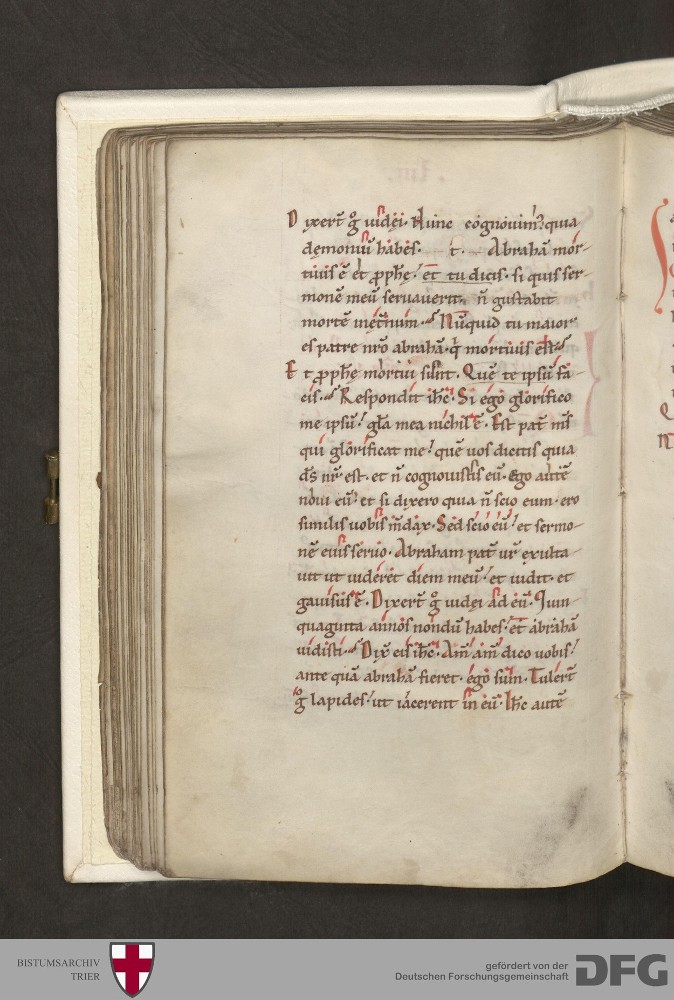 Dixer̄t g̊ iudęi. Nunc cognouim᷒ quia
dęmoniū habes. t. Abrahā mor-
tuus ē et ꝓphę. et tu dicis. si quis ser-
monē meū seruauerit. n̄ gustabit
mortē inet̄num. Nūquid tu maior
es patre nr̄o abrahā. q̇ mortuus est.
Et ꝓphę mortui sunt. Quē te ipsū fa-
cis. Respondit ih̄c. Si ego glorifico
me ipsū. gl̄a mea nichil ē. Est pat̄ m̄s
qui glorificat me. quē uos dicitis quia
d̄s nr̄ est. et n̄ cognouistis eū. Ego autē
noui eū. et si dixero quia n̄ scio eum. ero
similis uobis m̄dax. Sed scio eū. et sermo-
nē eius seruo. Abraham pat̄ ur̄ exulta-
uit ut uideret diem meū. et uidit. et
gauisus ē. Dixer̄t g̊ iudęi ad eū. Quin-
quaginta annos nondū habes. et abrahā
uidisti. Dix̄ eis ih̄c. Am̄ am̄ dico uobis.
ante quā abrahā fieret. ego sum. Tuler̄t
g̊ lapides. ut iacerent in eū. Ih̄c autē
BISTUMSARCHIV
TRIER
gefördert von der
Deutschen Forschungsgemeinschaft
DFG